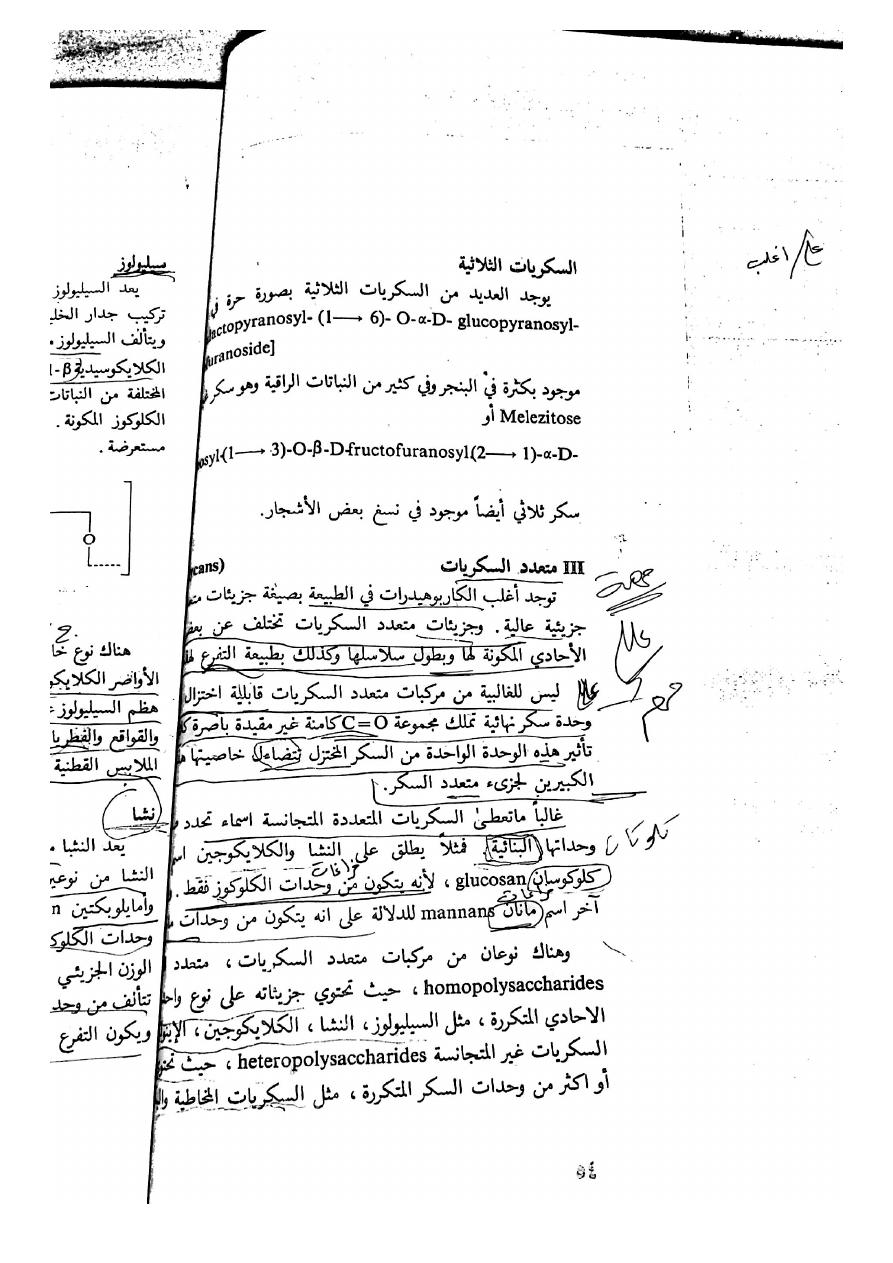 السكريات الثلاثية
يوجد العديد من السكريات الثلاثية بصورة حرة في
actopyranosyl- (1⟶ 6)- O-α-D- glucopyranosyl-
uranoside]
موجود بكثرة في البنجر وفي كثير من النباتات الراقية وهو سكر
Melezitose أو
osyl-(1⟶ 3)-O-β-D-fructofuranosyl(2⟶ 1)-α-D-
سكر ثلاثي أيضاً موجود في نسغ بعض الأشجار.
III متعدد السكريات
cans)
توجد أغلب الكاربوهيدرات في الطبيعة بصيغة جزيئات
جزيئية عالية. وجزيئات متعدد السكريات تختلف عن
الأحادي المكونة لها وبطول سلاسلها وكذلك بطبيعة التفرع
ليس للغالبية من مركبات متعدد السكريات قابلية اختزال
وحدة سكر نهائية تملك مجموعة C=O كامنة غير مقيدة بآصرة
تأثير هذه الوحدة الواحدة من السكر المختزل تتضاءل خاصيتها
الكبيرين لجزىء متعدد السكر.
غالباً ماتعطى السكريات المتعددة المتجانسة اسماء تحدد
وحداتها البنائية. فمثلاً يطلق على النشا والكلايكوجين
كلوكوسان glucosan ، لأنه يتكون من وحدات الكلوكوز فقط.
آخر اسم مانان mannans للدلالة على انه يتكون من وحدات
وهناك نوعان من مركبات متعدد السكريات، متعدد
homopolysaccharides ، حيث تحتوي جزيئاته على نوع
الاحادي المتكررة، مثل السيليولوز، النشا، الكلايكوجين،
السكريات غير المتجانسة heteropolysaccharides ، حيث
أو اكثر من وحدات السكر المتكررة، مثل السكريات المخاطية
اغلب
مهمة
سيليولوز
يعد السيليولوز
تركيب جدار
ويتألف السيليولوز
الكلايكوسيدية β-1
المختلفة من النباتات
الكلوكوز المكونة.
مستعرضة.
O
هناك نوع
الأواصر
هظم السيليولوز
والقواقع والفطريا
الملابس القطنية
نشا
يعد النشا
النشا من
وأمايلوبكتين
وحدات
الوزن الجزيئي
تتألف من
ويكون التفرع